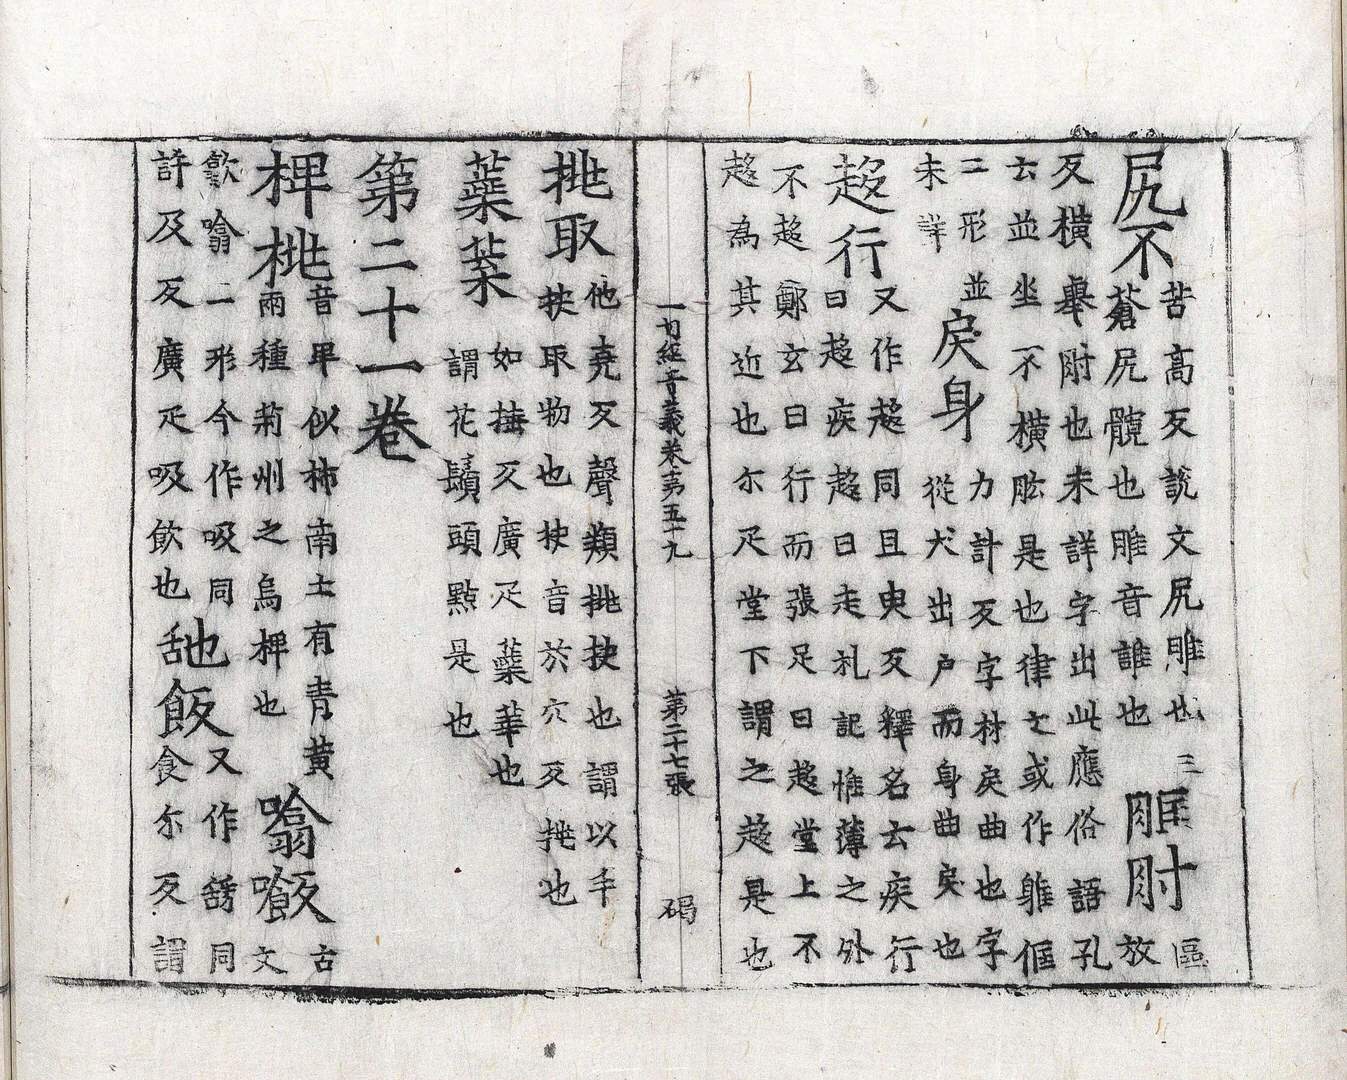 尻不
苦高反說文尻脽也
蒼尻髖也脽音誰也
三
肘
區
放
反橫舉肘也未詳字出此應俗語孔
云並坐不橫肱是也律文或作軀傴
二形並
未詳
戾身
力計反字林戾曲也字
從犬出戶而身曲戾也
趍行
又作趨同且臾反釋名云疾行
曰趍疾趍曰走札記惟薄之外
不趍鄭玄曰行而張足曰趍堂上不
趍為其近也尒疋堂下謂之趍是也
一切經音義卷第五十九
第二十七張
碣
挑取
他堯反聲類挑抉也謂以手
抉取物也抉音於穴反挑也
蘂葉
如捶反廣疋蘂華也
謂花鬚頭點是也
第二十一卷
椑桃
音卑似柿南土有青黃
兩種荊州之烏椑也
噏飯
古
文
歙噏二形今作吸同
許及反廣疋吸飲也
飯
又作同
食尒反謂